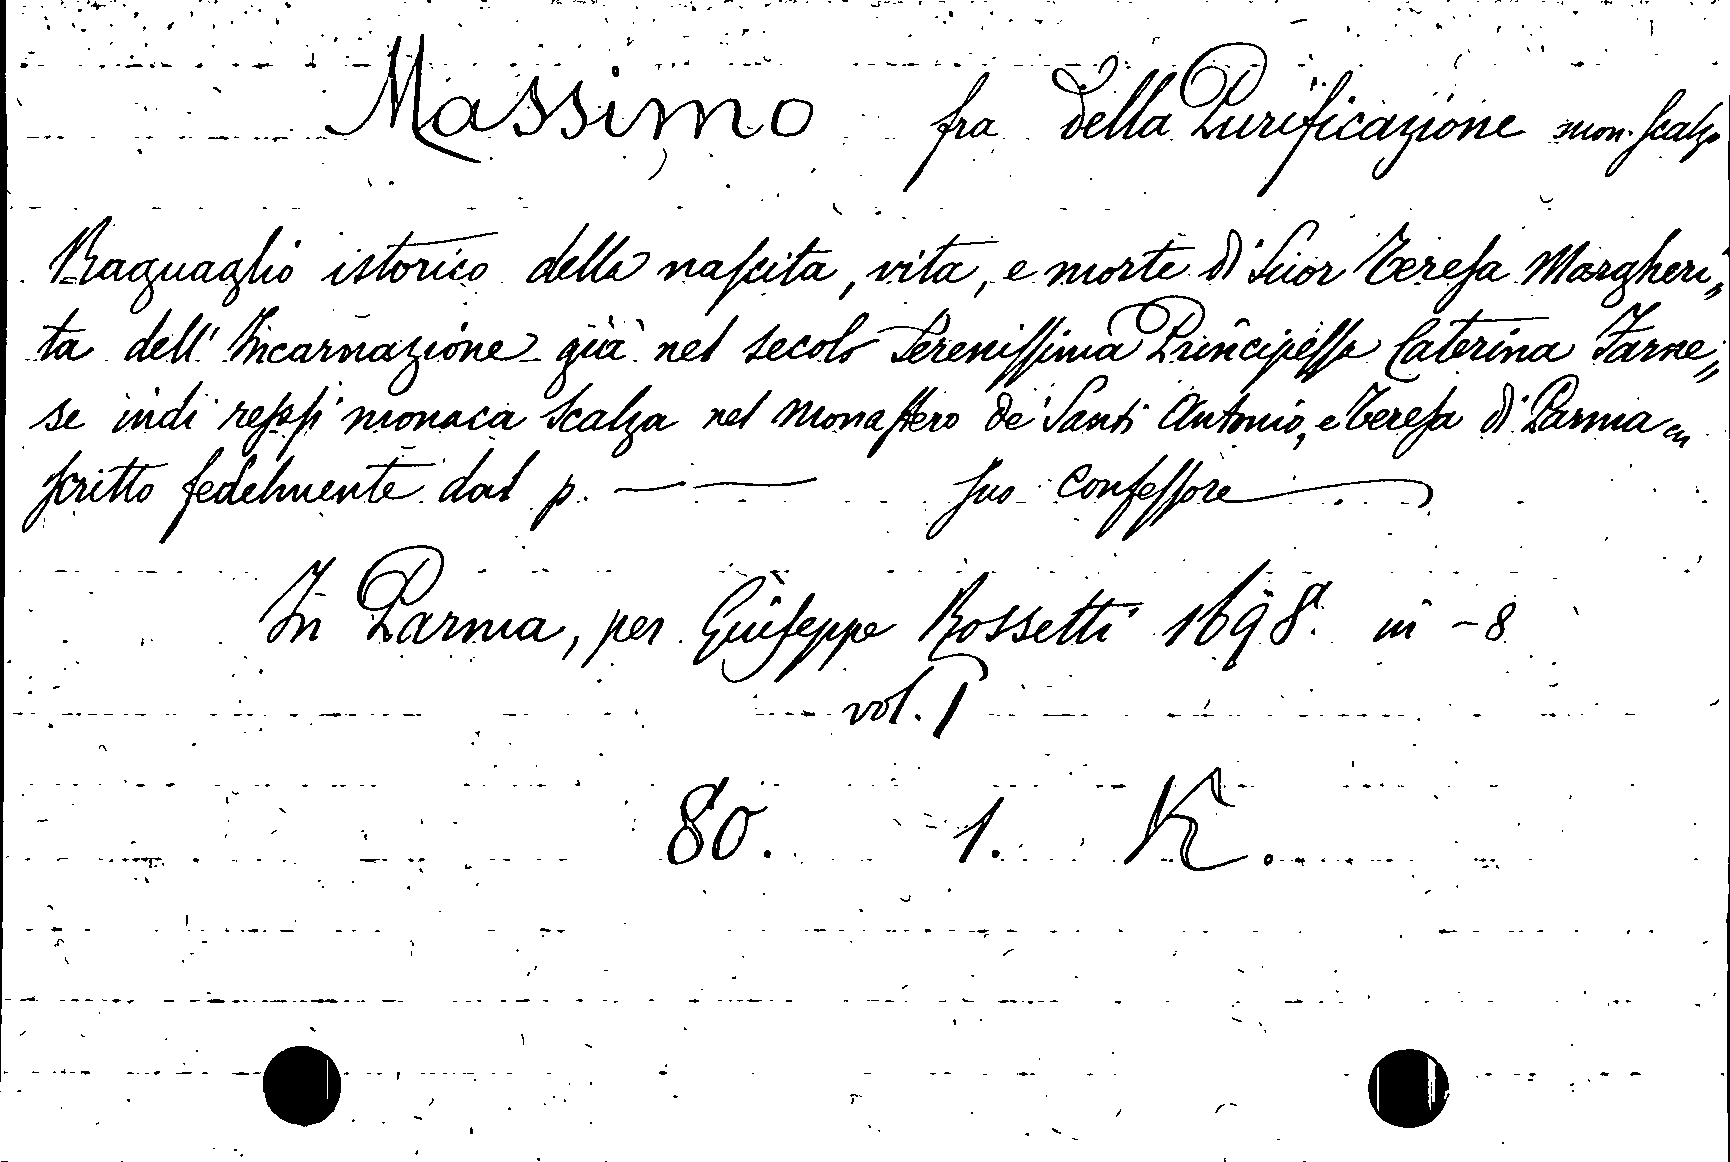 Massimo fra della Purificazione mon. scalzo
Raguaglio istorico della nascita, vita, e morte di Suor Teresa Margheri„
ta dell' Incarnazione già nel secolo Serenissima Principessa Caterina Farne„
se indi resasi monaca scalza nel monastero de' Santi Antonio, e Teresa di Parma
scritto fedelmente dal p. — — suo confessore
In Parma, per Giuseppe Rossetti 1698. in - 8
vol. 1
80. 1. K.